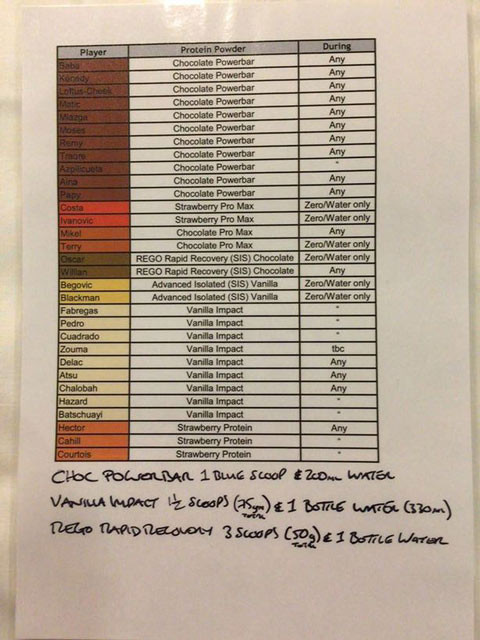 Player Protein Powder During
Baba Chocolate Powerbar Any
Kenedy Chocolate Powerbar Any
Loftus-Cheek Chocolate Powerbar Any
Matic Chocolate Powerbar Any
Miazga Chocolate Powerbar Any
Moses Chocolate Powerbar Any
Remy Chocolate Powerbar Any
Traore Chocolate Powerbar Any
Azpilicueta Chocolate Powerbar "
Aina Chocolate Powerbar Any
Papy Chocolate Powerbar Any
Costa Strawberry Pro Max Zero/Water only
Ivanovic Strawberry Pro Max Zero/Water only
Mikel Chocolate Pro Max Any
Terry Chocolate Pro Max Zero/Water only
Oscar REGO Rapid Recovery (SIS) Chocolate Zero/Water only
Willian REGO Rapid Recovery (SIS) Chocolate Any
Begovic Advanced Isolated (SIS) Vanilla Zero/Water only
Blackman Advanced Isolated (SIS) Vanilla Zero/Water only
Fabregas Vanilla Impact "
Pedro Vanilla Impact "
Cuadrado Vanilla Impact "
Zouma Vanilla Impact tbc
Delac Vanilla Impact Any
Atsu Vanilla Impact Any
Chalobah Vanilla Impact Any
Hazard Vanilla Impact "
Batschuayi Vanilla Impact "
Hector Strawberry Protein Any
Cahill Strawberry Protein "
Courtois Strawberry Protein "
CHOC POWERBAR 1 BLUE SCOOP & 200ml WATER
VANILLA IMPACT 1½ SCOOPS (75gm TOTAL) & 1 BOTTLE WATER (330ml)
REGO RAPID RECOVERY 3 SCOOPS (50g TOTAL) & 1 BOTTLE WATER